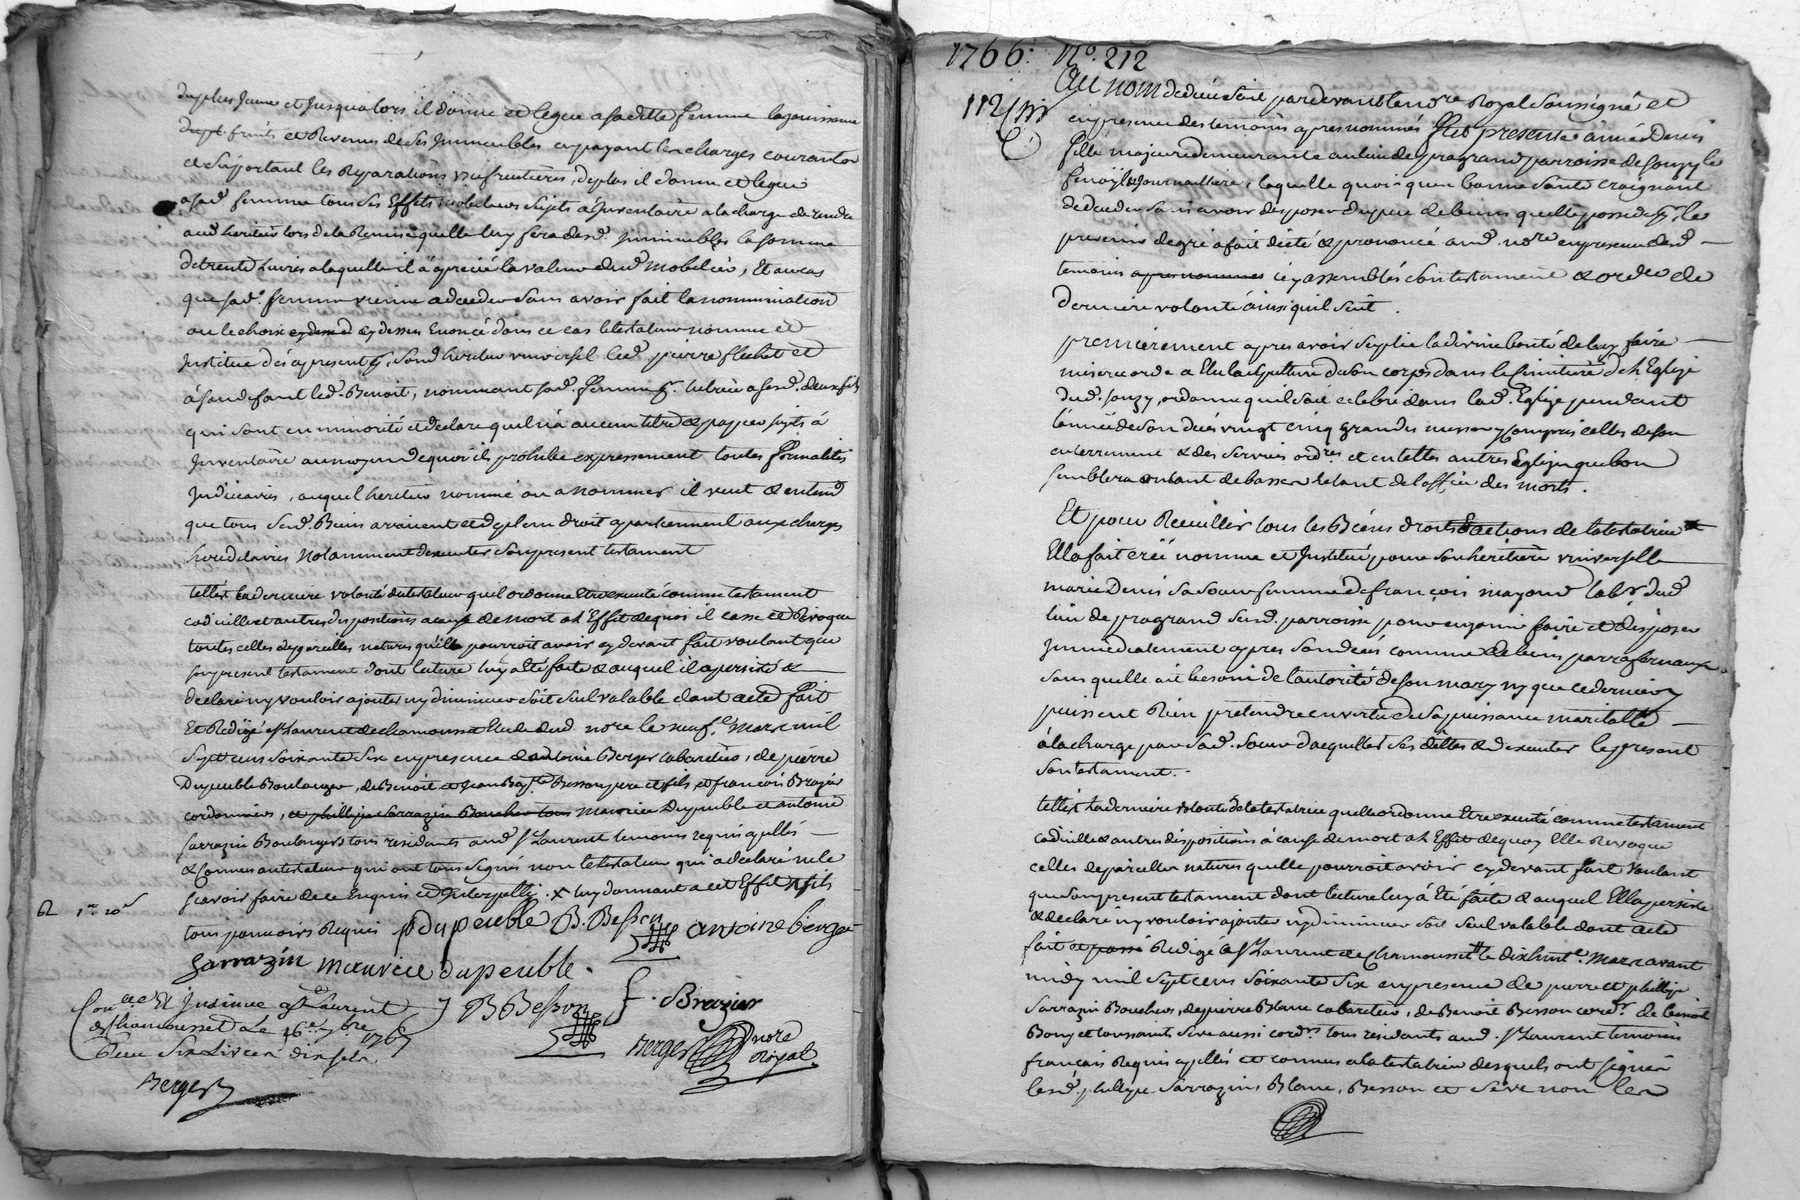 du plus jeune et jusqu'alors il donne et legue a sa ditte femme la jouissance
des fruits et Revenus de ses Immeubles en payant les charges courantes
et suportant les Reparations usufruitieres, de plus il donne et legue
a sad. femme tous ses Effets mobiliers sujets a Inventaire a la charge de rendre
aud heritier lors de la Remise quelle luy fera desd. Immeubles la somme
de trente Livres a laquelle il a aprecié la valeur dud mobilier, Et au cas
que sad. femme vienne a deceder sans avoir fait la nommination
ou le choix cy dessus Enoncé dans ce cas le testateur nomme et
Institue dés apresent son heritier universel led. pierre flechet et
à son defaut led. Benoit, nommant sad. femme tutrice a sesd. deux fils
qui sont en minorité et declare quil n'a aucun titre & papier sujets à
Inventaire au moyen de quoi il prohibe expressement toutes formalités
Judiciaires, auquel heritier nommé ou a nommer il veut & entend
que tous sesd. Biens arrivent et de plein droit apartiennent aux charges
notamment dexecuter son present testament
telle est sa derniere volonté du testateur quil ordonne Etre executé comme testament
codicille et autres dispositions a cause de mort a l'Effet de quoi il casse et Revoque
toutes celles de pareilles natures quil pourroit avoir cy devant fait voulant que
son present testament dont lecture luy a été faite & auquel il a persisté &
declaré ny vouloir ajouter ny diminuer soit seul valable dont acte fait
Et Redigé a St Laurent de chamousset Etude dud. nore le neuf e Mars mil
Sept cens soixante Six en presence d'antoine Berger cabaretier, de pierre
Dupeuble Boulanger, de Benoit et Jean Bapte Besson pere et fils et francois Brazier
cordonniers, et philippe Sarrazin Boucher tous Maurice Dupeuble et antoine
Sarrazin Boulangers tous residants aud. St Laurent temoins requis apellés
& Connus au testateur qui ont tous signés non le testateur qui a declaré ne le
scavoir faire de ce Enquis et Interpellé. x luy donnant a cet Effet
tous pouvoirs Requis p Dupeuble B. Besson antoine berger
Sarrazin maurice dupeuble.
B Besson f. Brazier
Con. et Insinué a St Laurent
de Chamousset Le 16e 7bre 1767
Reçu Six Livres dix sols.
Berger nore Royal
Berger
1766. No. 212
112
Au nom de dieu soit pardevant le nore Royal soussigné et
en presence des temoins apres nommés Fut presente aimée Denis
fille majeure demeurante au lieu de pragrand parroisse de souzy le
Journalliere, laquelle quoi qu'en bonne santé craignant
de deceder sans avoir disposer du peu de biens quelle possede
de gré a fait dicté & prononcé aud. nore en presence desd
temoins apres nommes icy assemblés son testament & ordre de
derniere volonté ainsi qu'il suit.
premierement apres avoir suplié la divine bonté de luy faire
misericorde a Elu la sepulture de son corps dans le cimitiere de l'Eglize
dud. souzy, ordonne quil soit celebré dans lad. Eglize pendant
l'année de son décés vingt cinq grandes messes y compris celles de son
enterrement & des services ordres et en telles autres Eglizes que bon
semblera de l'office des morts.
Et pour Recuillir tous les Biens droits & actions de la testatrice
Ella fait créé nommé et Institué pour son heritiere universelle
marie Denis sa soeur femme de françois mayoud labr dud.
lieu de pragrand susd. parroisse pour en jouir faire et disposer
Immediatement apres son decés comme de biens parrafernaux
sans quelle ait besoin de l'autorité de son mary ny que ce dernier y
puissent Rien pretendre en vertu de sa puissance maritalle
à la charge par sad. soeur d'acquitter ses dettes & dexecuter le present
son testament.
telle est sa derniere volonté de la testatrice quelle ordonne Etre executé comme testament
codicille & autres dispositions à cause de mort a l'Effet de quoy Elle Revoque
celles de pareilles natures quelle pourroit avoir cy devant fait Voulant
que son present testament dont lecture luy à Eté faite & auquel Ella persisté
& declaré ny vouloir ajouter ny diminuer soit seul valable dont acte
fait et passé Redigé à St Laurent de Chamousset le dix huit e. Mars avant
midy mil Sept cens soixante Six en presence de pierre et philippe
Sarrazin Bouchers, de pierre Blanc cabaretier, de Benoit Besson cordr. de benoit
Bony et toussaint Seve aussi cordrs tous residents aud. St Laurent temoins
français Requis apellés et connus a la testatrice desquels ont signés
lesd. philippe Sarrazin, Blanc, Besson et Seve non les